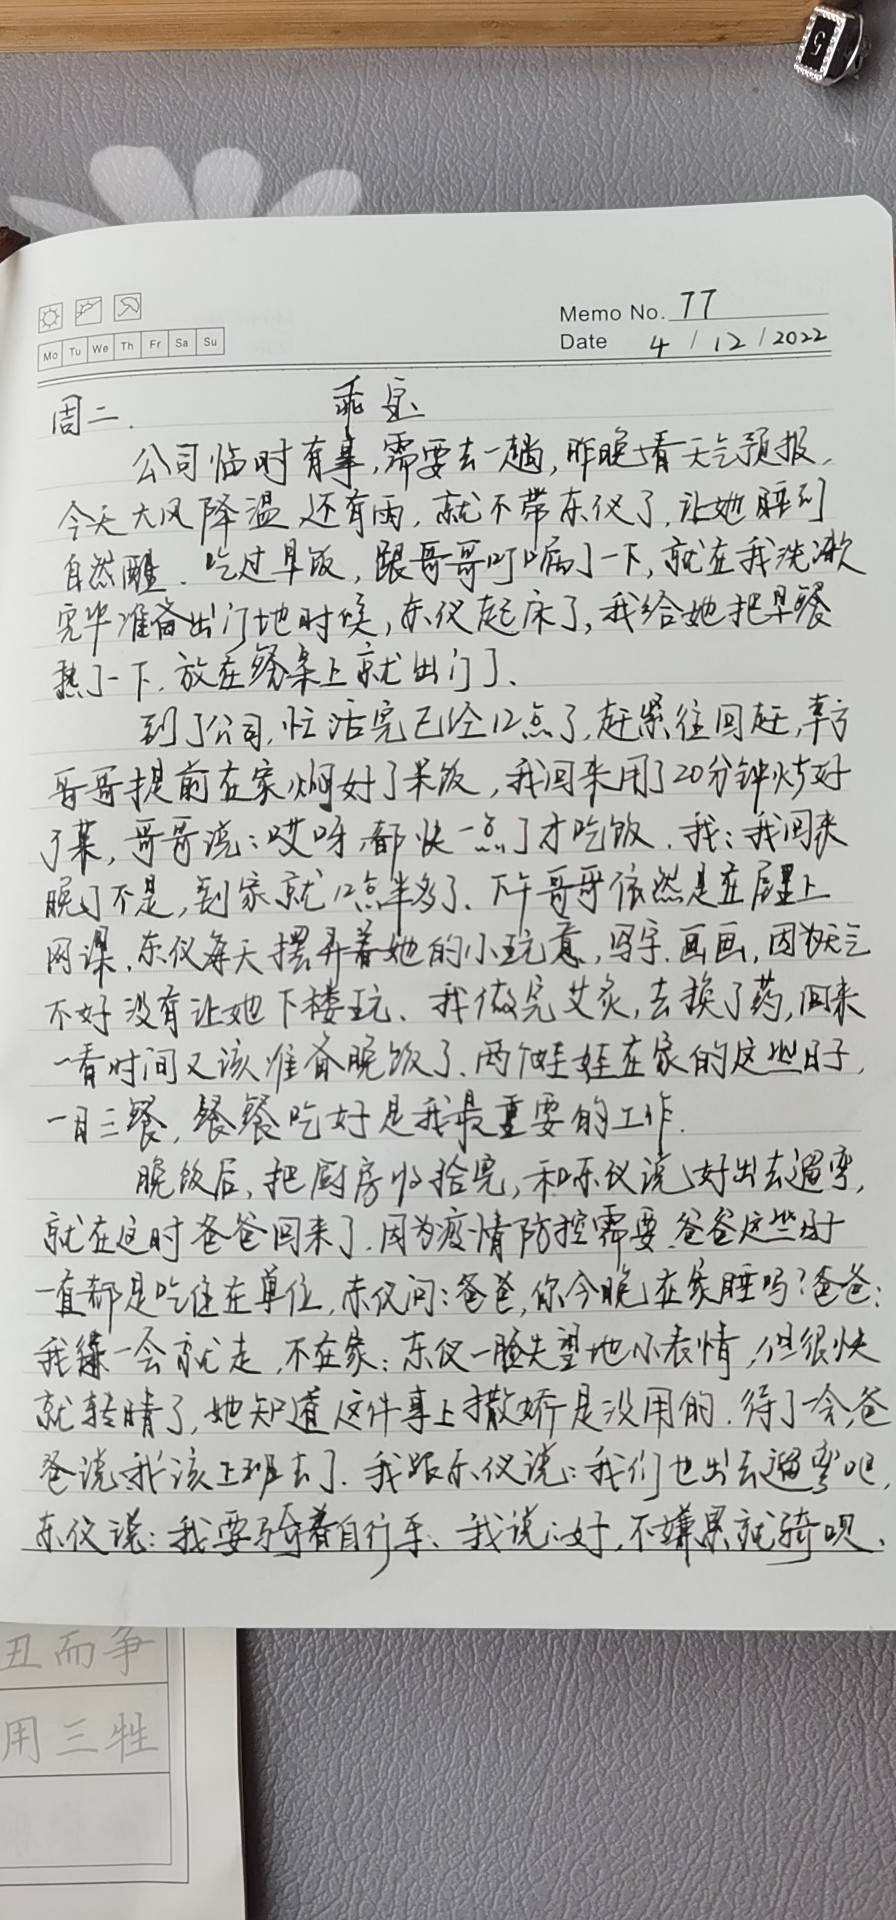 5
Memo No. 77
Mo Tu We Th Fr Sa Su
Date 4 / 12 / 2022
周二. 乖宝
公司临时有事,需要去一趟,昨晚看天气预报,
今天大风降温还有雨,就不带东仪了,让她睡到
自然醒.吃过早饭,跟哥哥叮嘱了一下,就在我洗漱
完毕准备出门地时候,东仪起床了,我给她把早餐
热了一下.放在餐桌上就出门了.
到了公司,忙活完已经12点了,赶紧往回赶,幸亏
哥哥提前在家焖好了米饭,我回来用了20分钟炒好
了菜,哥哥说:哎呀,都快一点了才吃饭.我:我回来
晚了不是,到家就12点半多了.下午哥哥依然是在屋里上
网课,东仪每天摆弄着她的小玩意,写字.画画,因为天气
不好没有让她下楼玩.我做完艾灸,去换了药,回来
一看时间又该准备晚饭了.两个娃娃在家的这些日子,
一日三餐,餐餐吃好是我最重要的工作.
晚饭后,把厨房收拾完,和东仪说好出去遛弯,
就在这时爸爸回来了.因为疫情防控需要.爸爸这些
一直都是吃住在单位,东仪问:爸爸,你今晚在家睡吗?爸爸:
我一会就走,不在家:东仪一脸失望地小表情,但很快
就转晴了,她知道这件事上撒娇是没用的.待了一会,爸
爸说我该上班去了.我跟东仪说:我们也出去遛弯吧,
东仪说:我要骑着自行车.我说:好,不嫌累就骑呗.
丑而争
用三牲